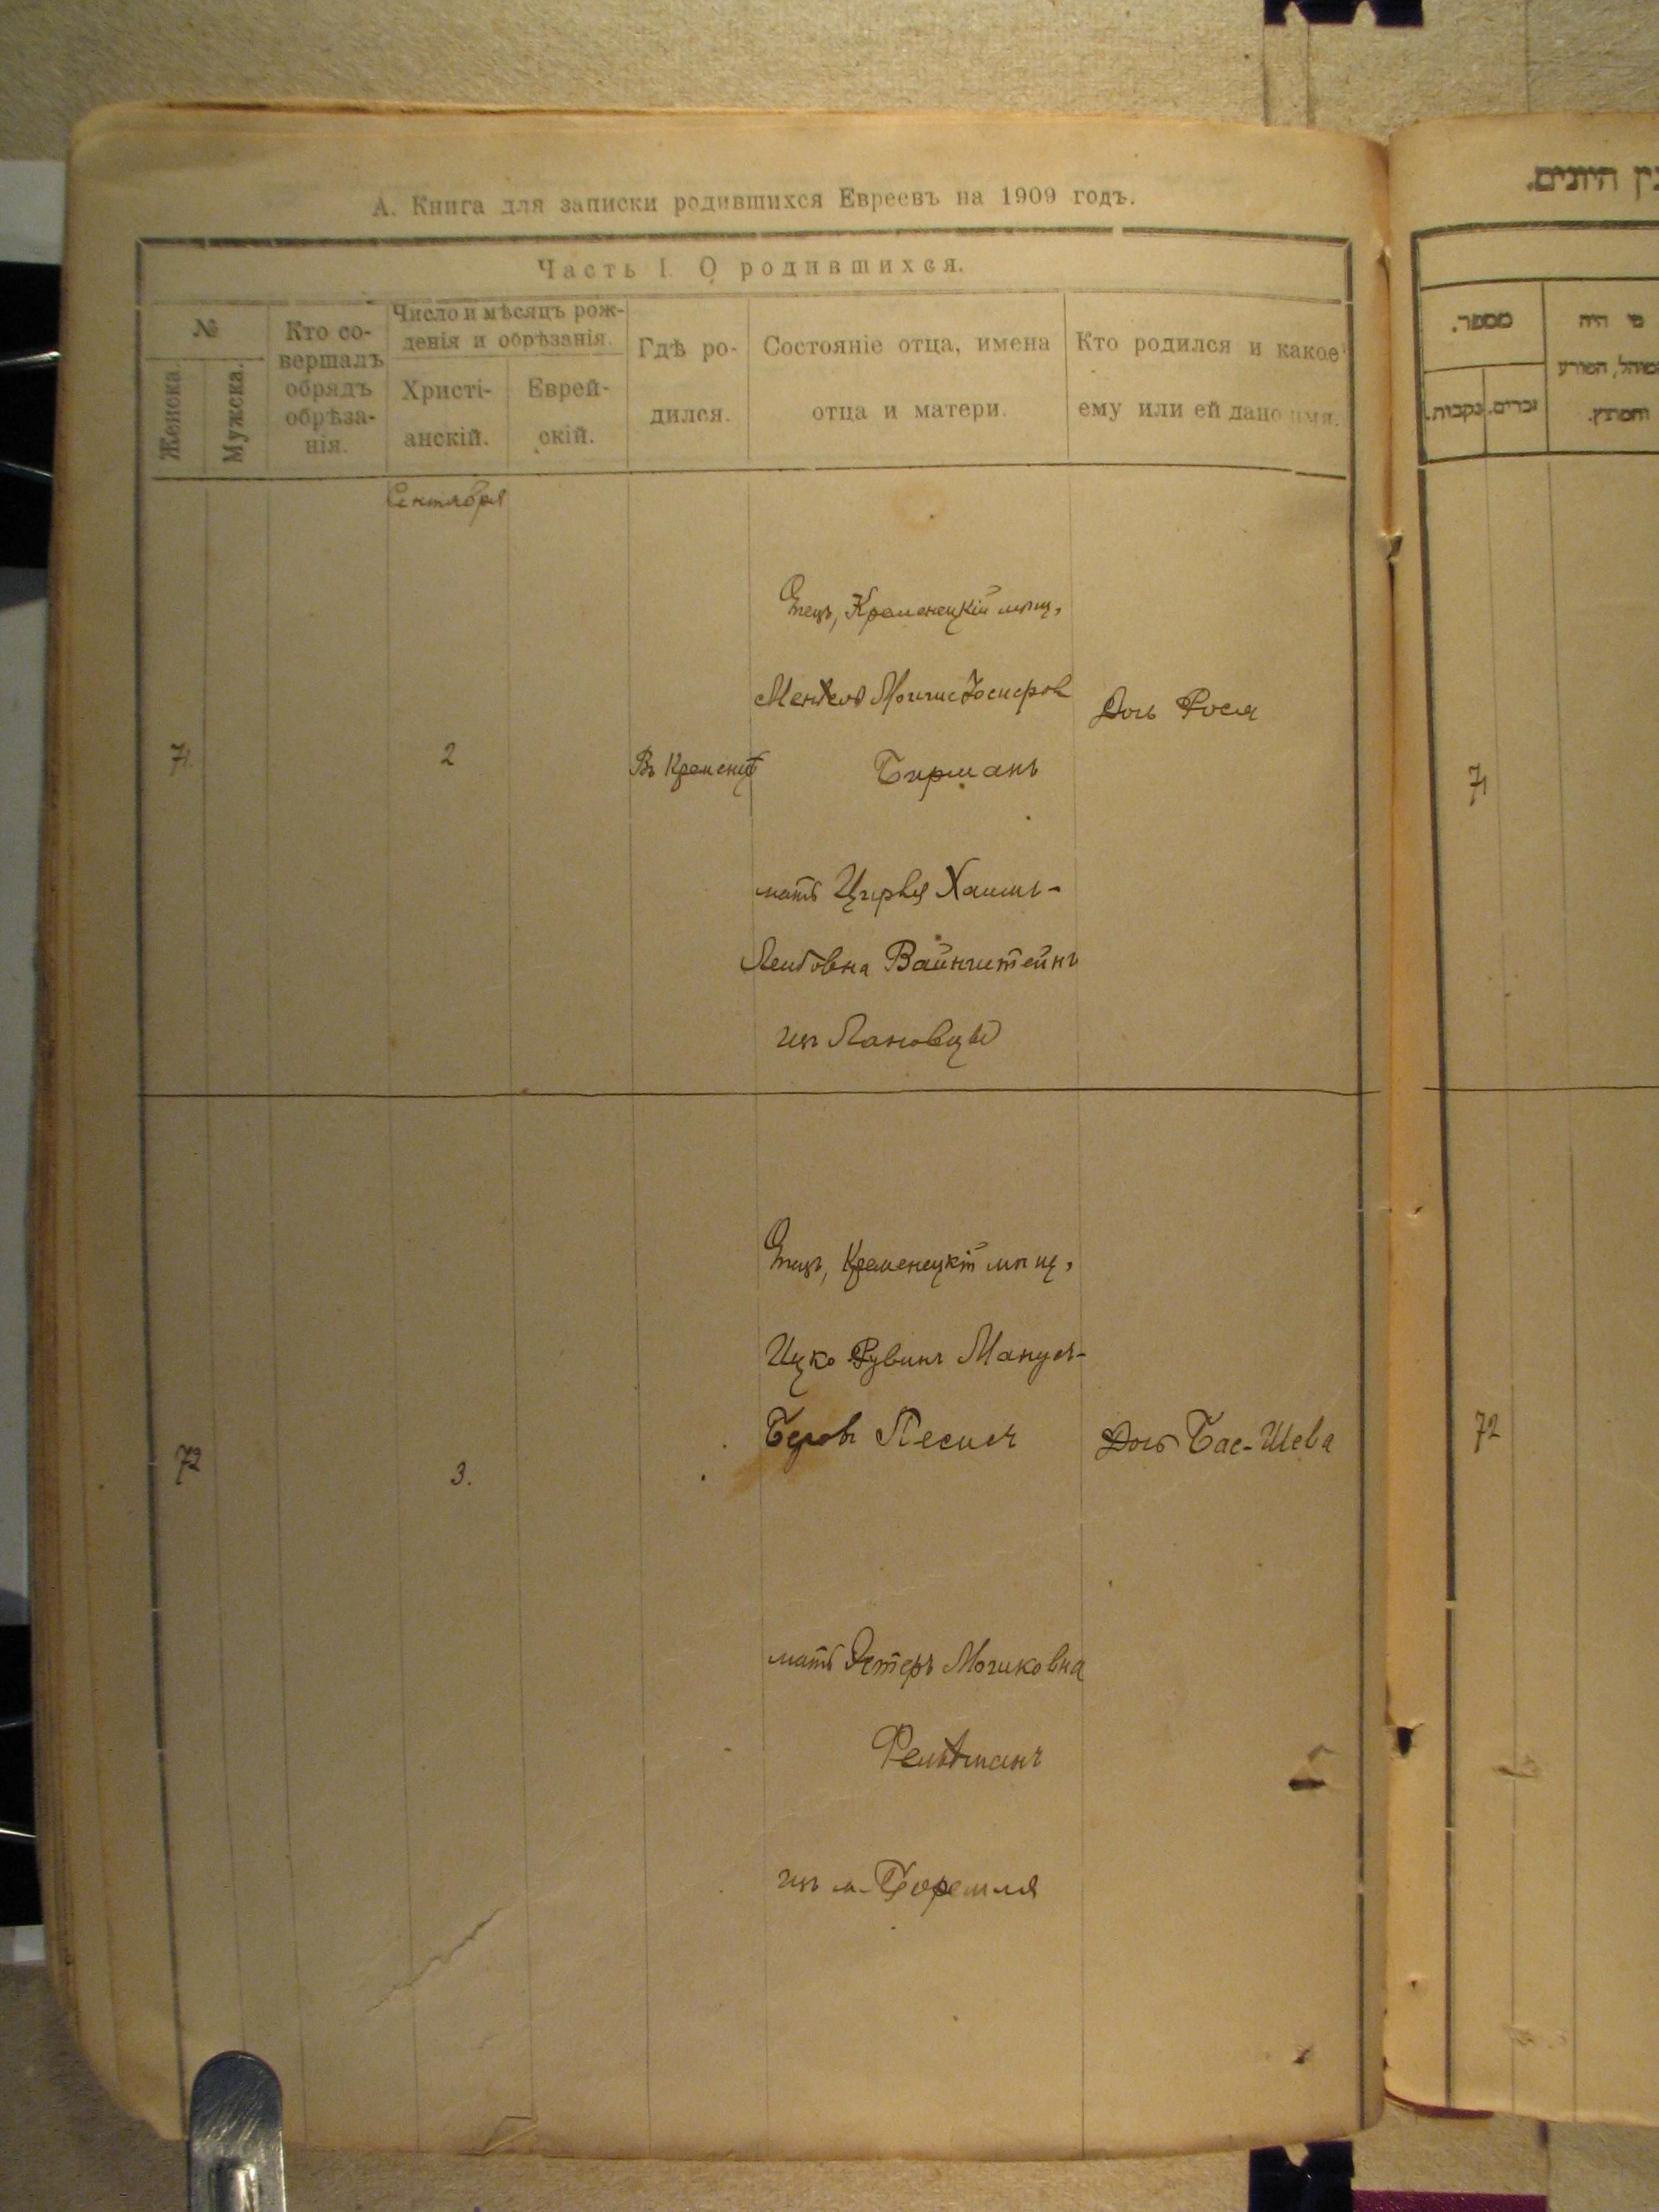 А. Книга для записки родившихся Евреевъ на 1909 годъ.
Часть I. О родившихся.
№
Женска.
Мужска.
Кто совершалъ
обрядъ
обрѣза-
нія.
Число и мѣсяцъ рож-
денія и обрѣзанія.
Христі-
анскій.
Еврей-
скій.
Гдѣ ро-
дился.
Состояніе отца, имена
отца и матери.
Кто родился и какое
ему или ей дано имя.
Сентября
71.
2
Въ Кременцѣ
Отецъ, Кременецкій мѣщ,
Бирманъ
мать Цирля Хаимъ-
Лейбовна Вайнштейнъ
изъ Лановцы
Дочь Рося
72
3.
Отецъ, Кременецкій мѣщ,
Ицко Рувинъ Манусъ-
Беровъ Песисъ
мать Эстеръ Мошковна
Фельтманъ
изъ м. Боремля
Дочь Бас-Шева
מספר.
זכרים.
נקבות.
מי היה
המוהל, הפורע
והמוצץ.
71
72